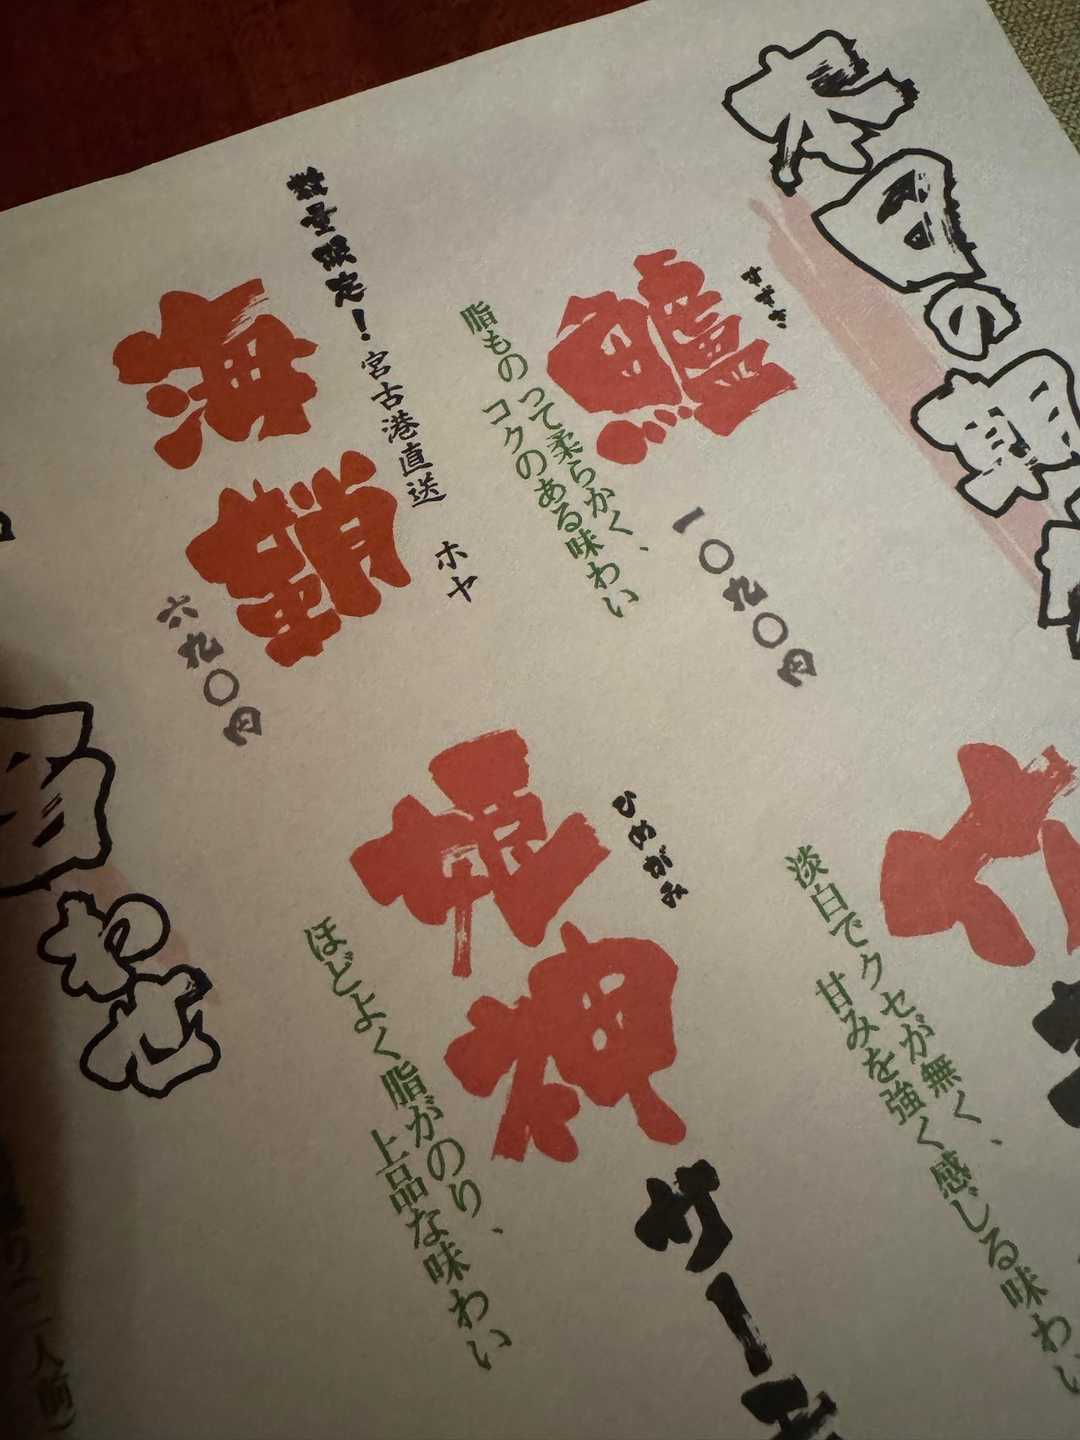 本日の単品
鱸
すずき
脂ものって柔らかく、
コクのある味わい
一〇九〇円
数量限定！宮古港直送
ホヤ
海鞘
六九〇円
淡白でクセが無く、
甘みを強く感じる味わい
姫神
ひめがみ
サーモ
ほどよく脂がのり、
上品な味わい
わせ